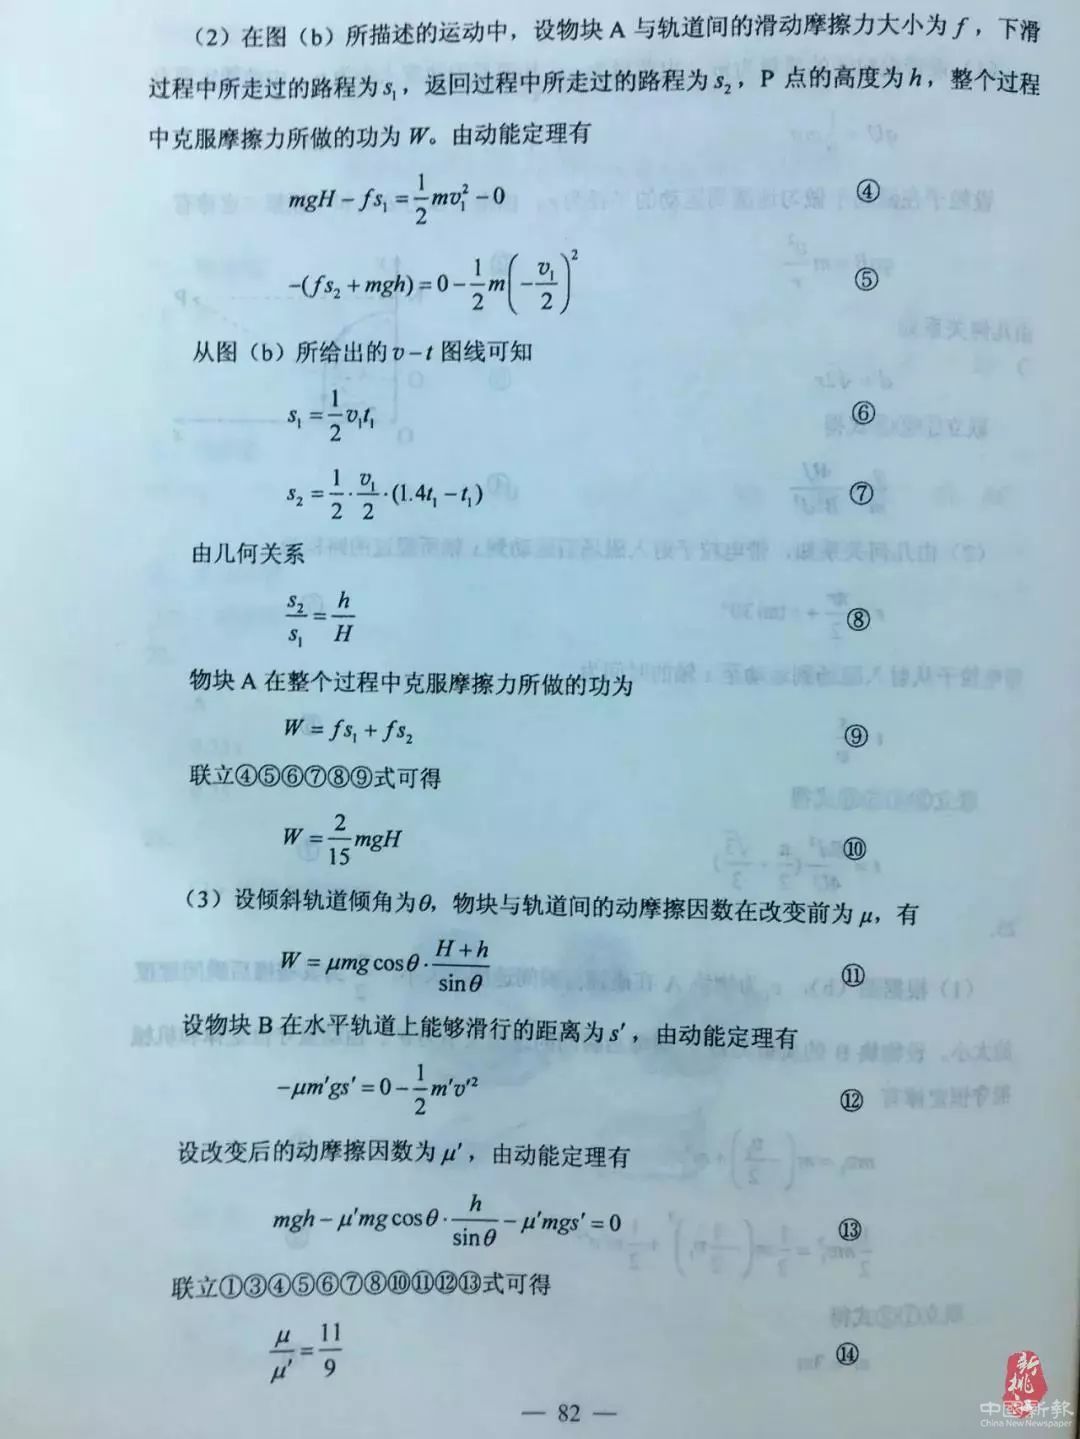 （2）在图（b）所描述的运动中，设物块 A 与轨道间的滑动摩擦力大小为 f，下滑
过程中所走过的路程为 s₁，返回过程中所走过的路程为 s₂，P 点的高度为 h，整个过程
中克服摩擦力所做的功为 W。由动能定理有
mgH − fs₁ = 1/2 mv₁² − 0 ④
−(fs₂ + mgh) = 0 − 1/2 m(−v₁/2)² ⑤
从图（b）所给出的 v−t 图线可知
s₁ = 1/2 v₁t₁ ⑥
s₂ = 1/2 · v₁/2 · (1.4t₁ − t₁) ⑦
由几何关系
s₂/s₁ = h/H ⑧
物块 A 在整个过程中克服摩擦力所做的功为
W = fs₁ + fs₂ ⑨
联立④⑤⑥⑦⑧⑨式可得
W = 2/15 mgH ⑩
（3）设倾斜轨道倾角为θ，物块与轨道间的动摩擦因数在改变前为 μ，有
W = μmg cosθ · (H + h)/sinθ ⑪
设物块 B 在水平轨道上能够滑行的距离为 s′，由动能定理有
−μm′gs′ = 0 − 1/2 m′v′² ⑫
设改变后的动摩擦因数为 μ′，由动能定理有
mgh − μ′mg cosθ · h/sinθ − μ′mgs′ = 0 ⑬
联立①③④⑤⑥⑦⑧⑩⑪⑫⑬式可得
μ/μ′ = 11/9 ⑭
— 82 —
新桃
中國新報
China New Newspaper